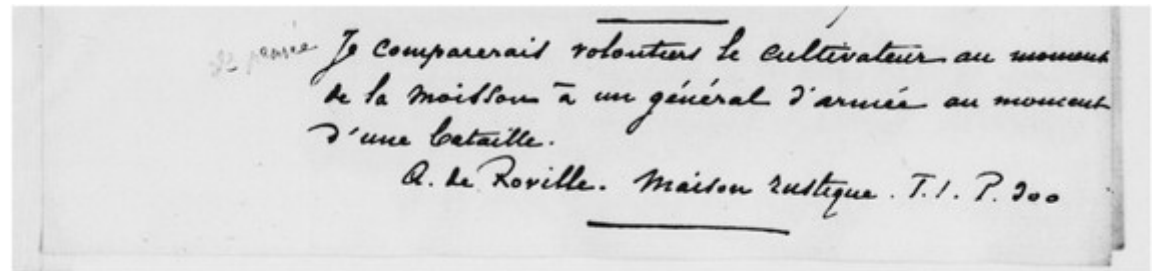 Je comparerais volontiers le cultivateur au moment
de la moisson à un général d'armée au moment
d'une bataille.
A. de Roville. Maison rustique. T.1. P. 300